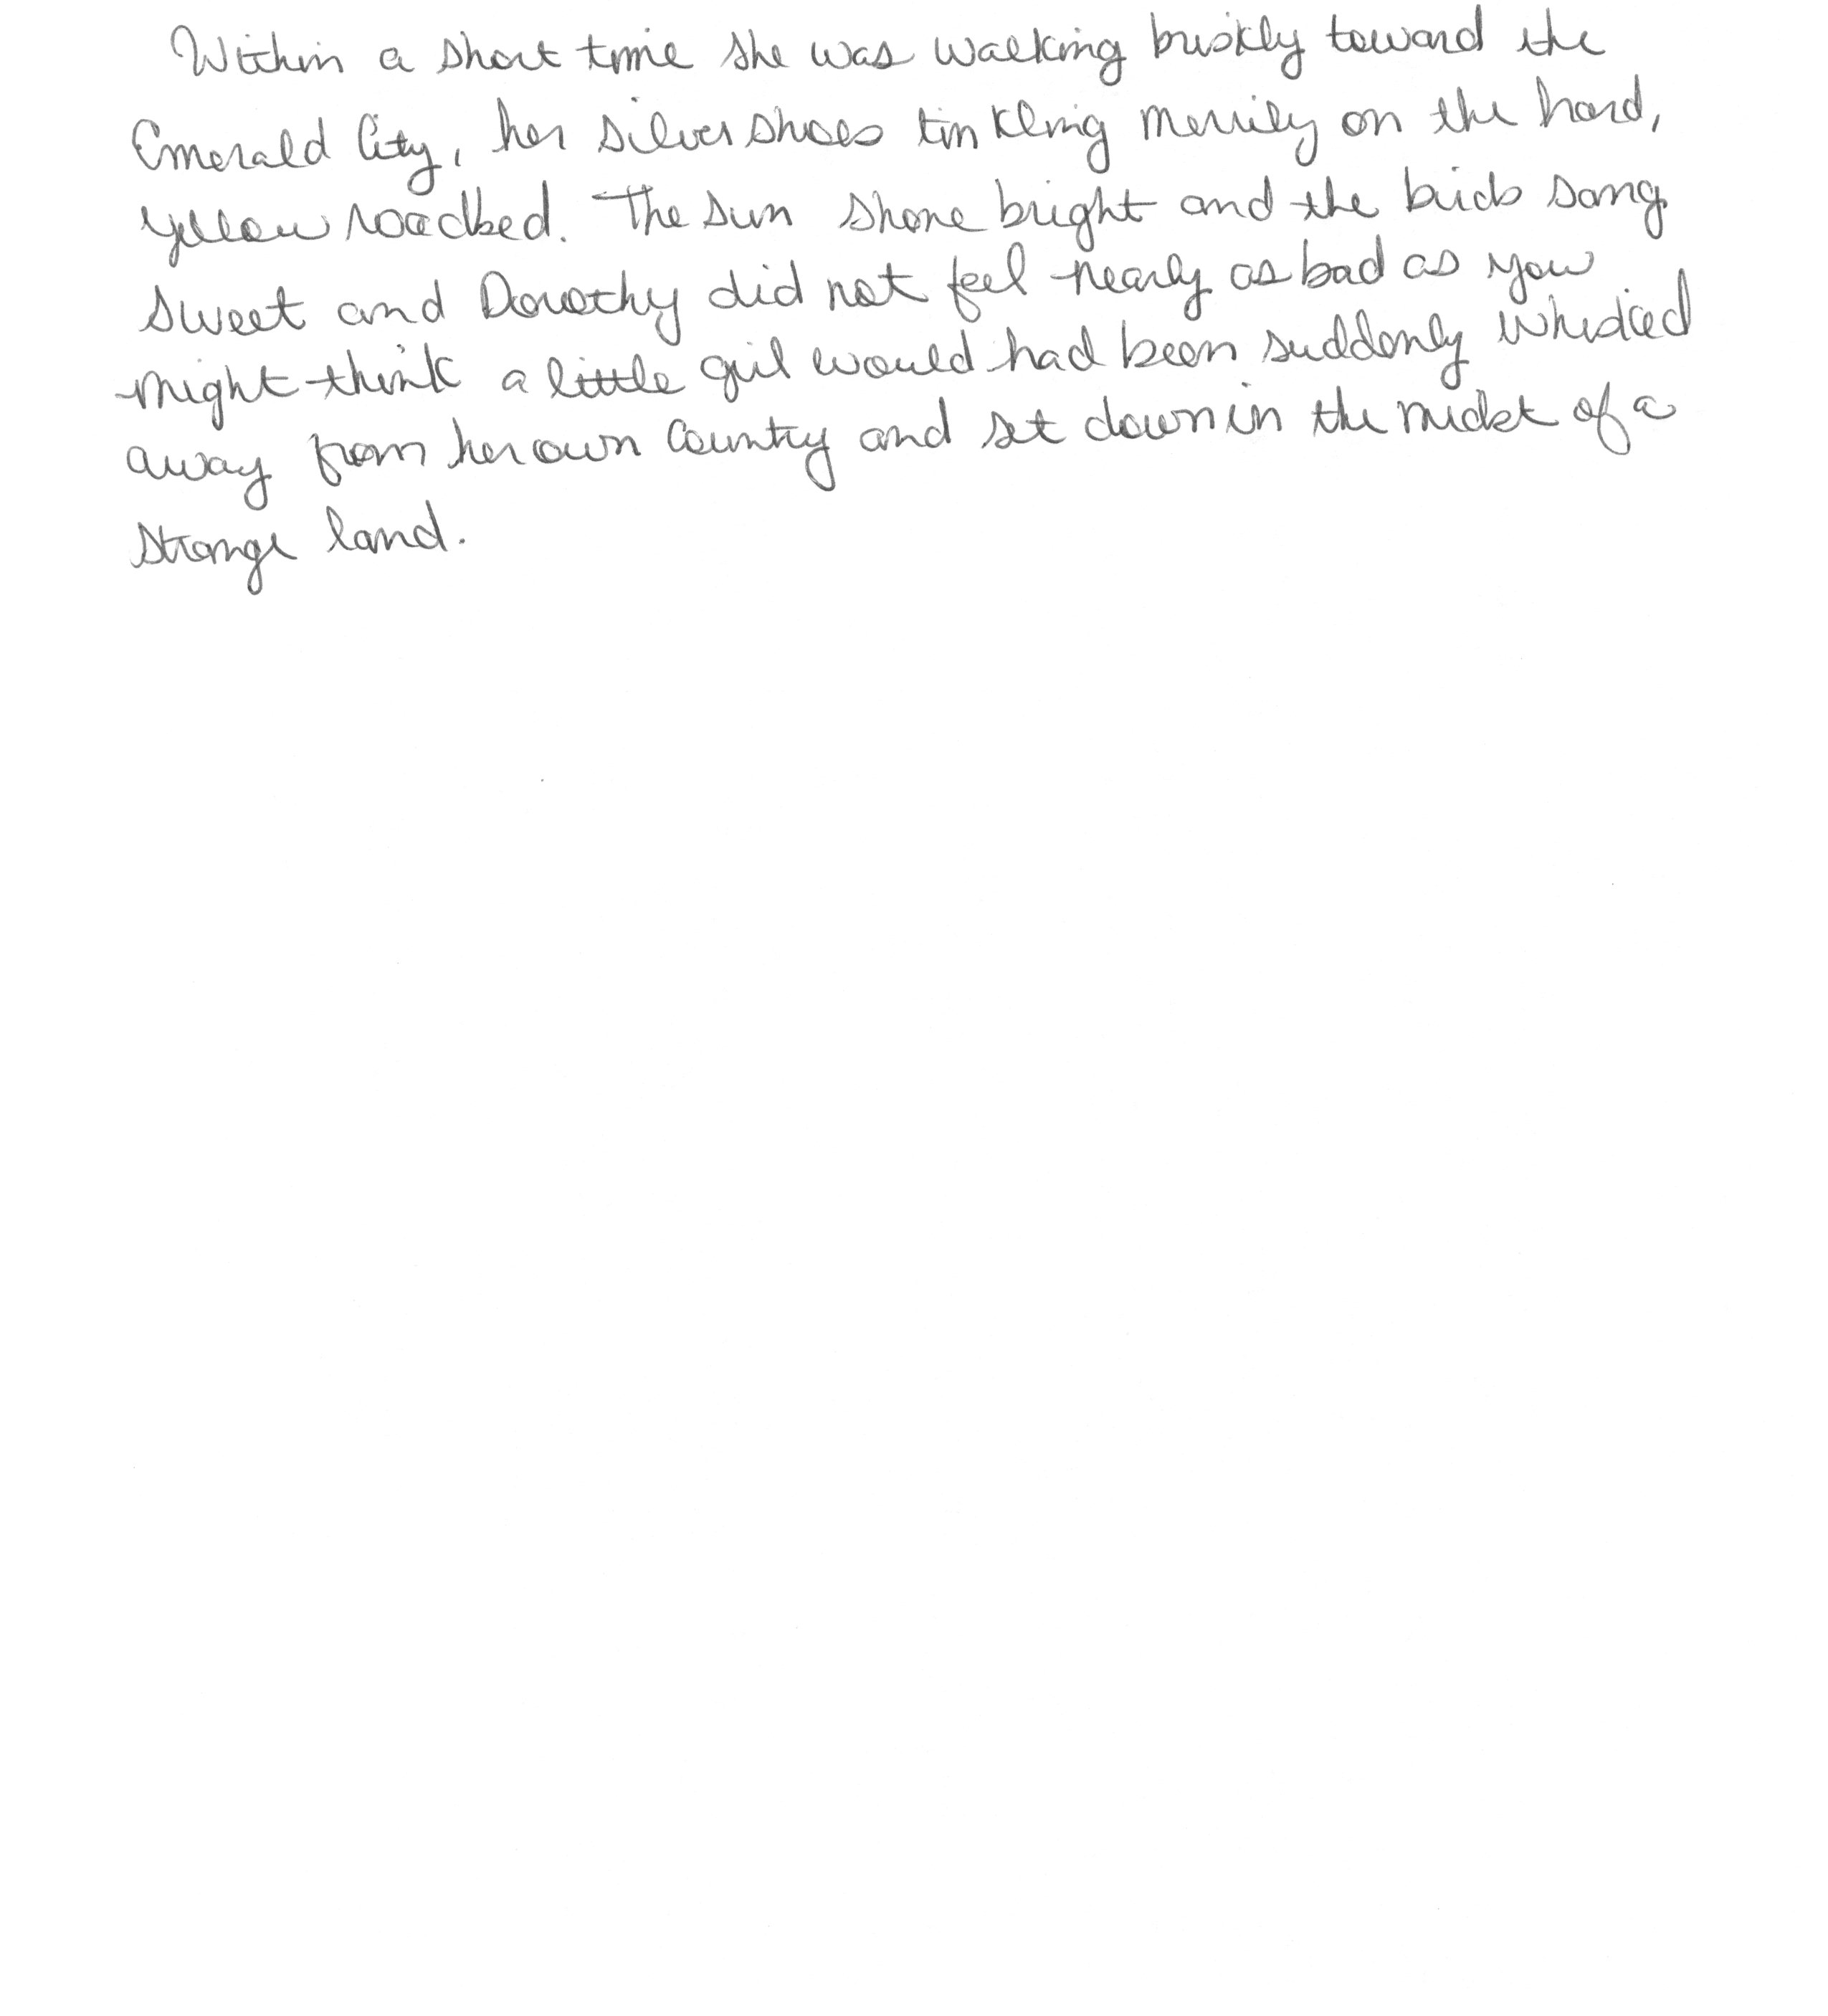 Within a short time she was walking briskly toward the
Emerald City, her silver shoes tinkling merrily on the hard,
yellow roadbed. The sun shone bright and the birds sang
sweet and Dorothy did not feel nearly as bad as you
might think a little girl would had been suddenly whisked
away from her own country and set down in the midst of a
strange land.